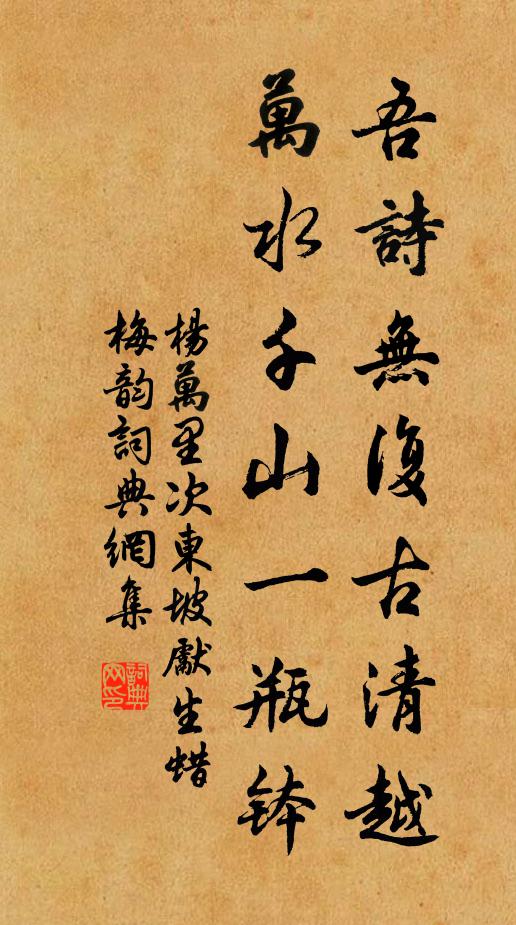 吾詩無復古清越
萬水千山一瓶鉢
楊萬里次東坡獻生蜡
梅韵詞典網集
詞典网印